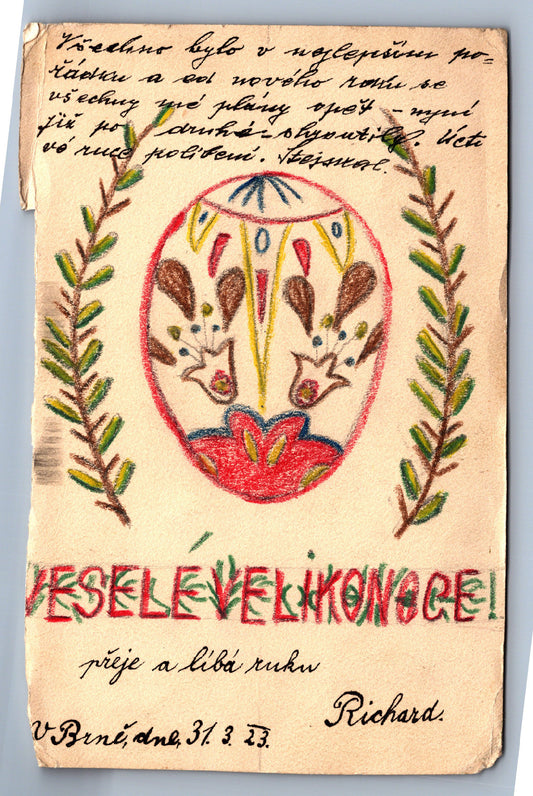 Všechno bylo v nejlepším po-
řádku a od nového roku se
všechny mé plány opět – nyní
již po druhé – shroutily. Ucti
vé ruce políbení.
VESELÉ VELIKONOCE!
přeje a líbá ruku
Richard.
V Brně, dne, 31. 3. 23.